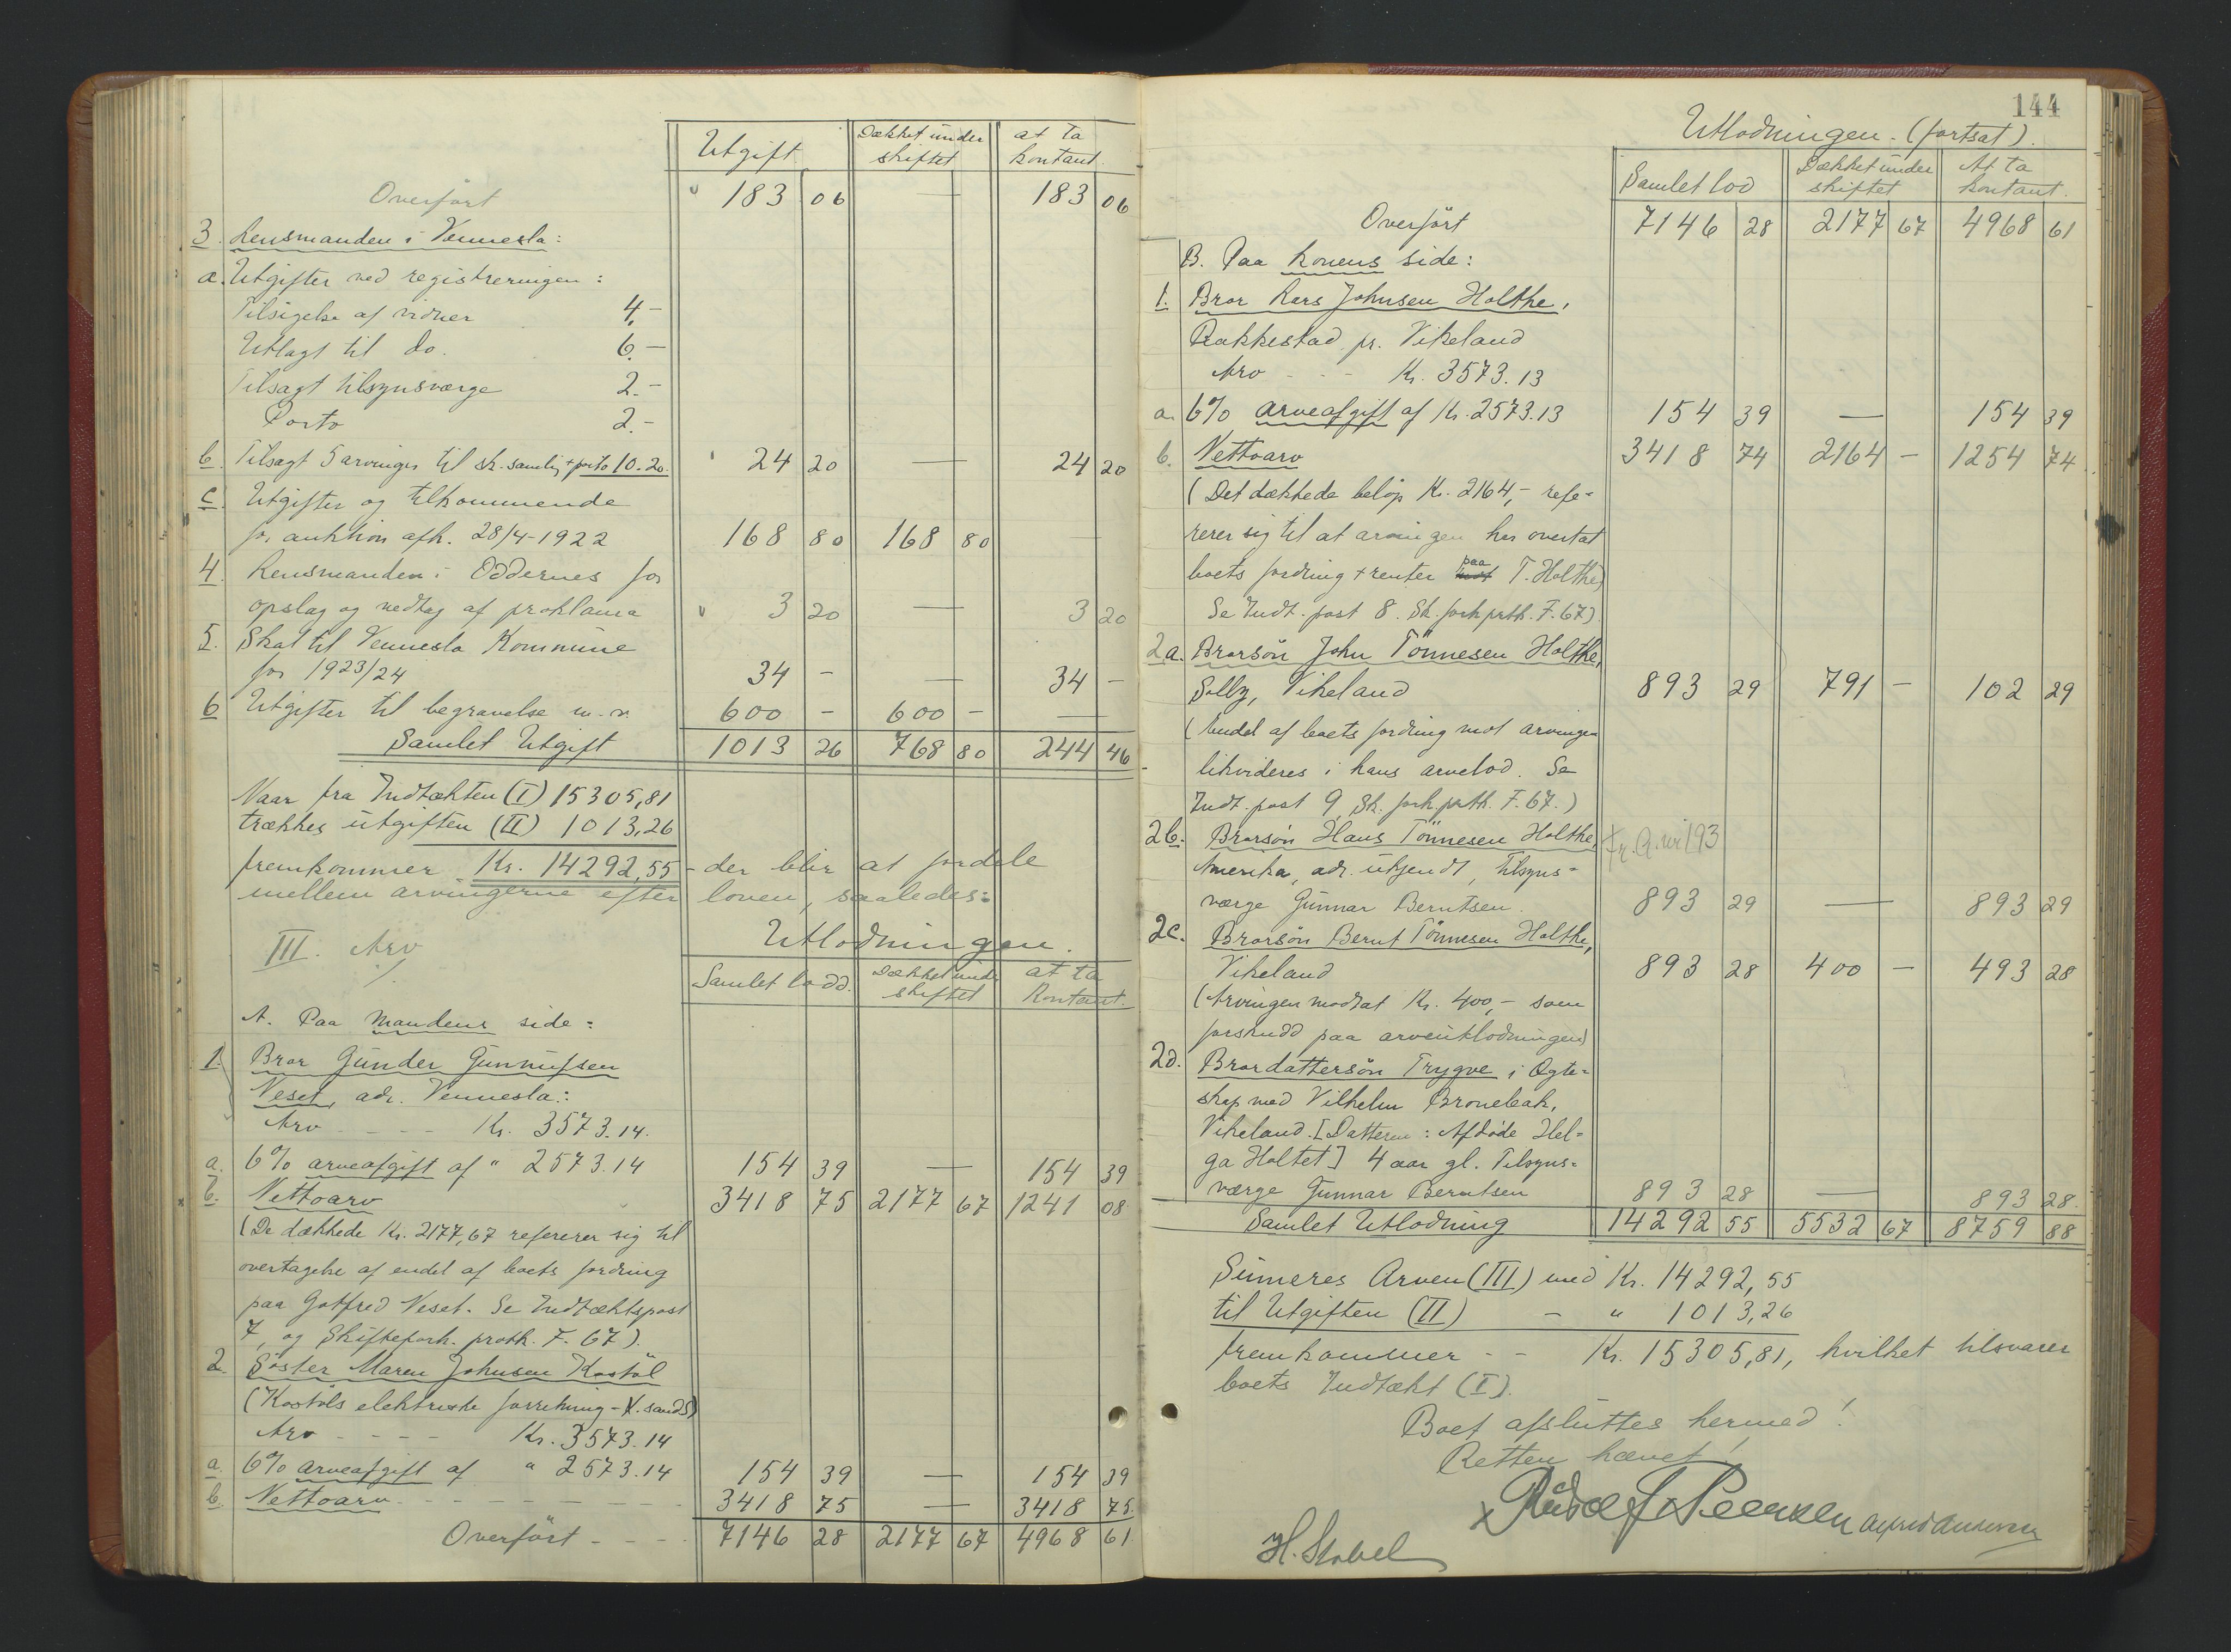 Utgift | Dækket under skiftet | at ta kontant
Overført 183 06 — 183 06
3. Lensmanden i Vennesla:
a. Utgifter ved registreringen:
Tilsigelse af vidner 4,-
Utlagt til do. 6.-
Tilsagt tilsynsværge 2.-
Porto 2.-
b. Tilsagt 5 arvinger til sk. samlig + porto 10.20. 24 20 — 24 20
c. Utgifter og tilkommende
for auktion afh. 28/4-1922 168 80 168 80 —
4. Lensmanden i Oddernes for
opslag og nedtag af proklama 3 20 — 3 20
5. Skat til Vennesla Kommune
for 1923/24 34 - — 34 -
6 Utgifter til begravelse m.v. 600 - 600 - —
Samlet Utgift 1013 26 768 80 244 46
Naar fra Indtækten (I) 15305,81
trækkes utgiften (II) 1013,26
fremkommer Kr. 14292,55 - der blir at fordele
mellem arvingerne efter loven, saaledes:
III. Arv
Utlodningen.
Samlet lodd. | Dækket under skiftet | at ta kontant.
A. Paa Mandens side:
1. Bror Gunder Gunnufsen
Neset, adr. Vennesla:
Arv - - - - Kr. 3573.14.
a. 6% arveafgift af " 2573.14 154 39 — 154 39
b. Nettoarv 3418 75 2177 67 1241 08
(De dækkede Kr. 2177,67 refererer sig til
overtagelse af endel af boets fordring
paa Gotfred Neset. Se Indtæktspost
7, og Skifteforh. proth. F. 67).
2. Søster Maren Johnsen Kostøl
(Kostøls elektriske forretning - K.sands)
Arv - - - - Kr. 3573.14
a. 6% arveafgift af " 2573.14 154 39 — 154 39
b. Nettoarv - - - - - - 3418 75 — 3418 75
Overført - - - 7146 28 2177 67 4968 61
144
Utlodningen. (fortsat).
Samlet lod | Dækket under skiftet | At ta kontant.
Overført 7146 28 2177 67 4968 61
B. Paa Konens side:
1. Bror Lars Johnsen Holthe,
Rakkestad pr. Vikeland
Arv - - - Kr. 3573.13
a. 6% arveafgift af Kr. 2573.13 154 39 — 154 39
b. Nettoarv 3418 74 2164 - 1254 74
(Det dækkede beløp Kr. 2164,- refe-
rerer sig til at arvingen har overtat
boets fordring + renter paa T. Holthe)
Se Indt. post 8. Sk. forh. proth. F. 67).
2a. Brorsøn John Tönnesen Holthe,
Solly, Vikeland 893 29 791 - 102 29
(Andel af boets fordring mot arvingen
likvideres i hans arvelod. Se
Indt. post 9, Sk. forh. proth. F. 67.)
2b. Brorsøn Hans Tönnesen Holthe,
Amerika, adr. ukjendt, tilsyns-
værge Gunnar Berntsen. 893 29 — 893 29
2c. Brorsøn Bernt Tönnesen Holthe,
Vikeland 893 28 400 - 493 28
(Arvingen modtat Kr. 400,- som
forskudd paa arveutlodningen)
2d. Brordattersøn Trygve i Ægte-
skap med Vilhelm Bronebak,
Vikeland. [Datteren: Afdøde Hel-
ga Holtet] 4 aar gl. Tilsyns-
værge Gunnar Berntsen 893 28 — 893 28.
Samlet Utlodning 14292 55 5532 67 8759 88
Sumeres Arven (III) med Kr. 14292,55
til Utgiften (II) - " 1013,26
fremkommer - - Kr. 15305,81, hvilket tilsvarer
boets Indtækt (I).
Boet afsluttes hermed!
Retten hævet!
H. Stabel